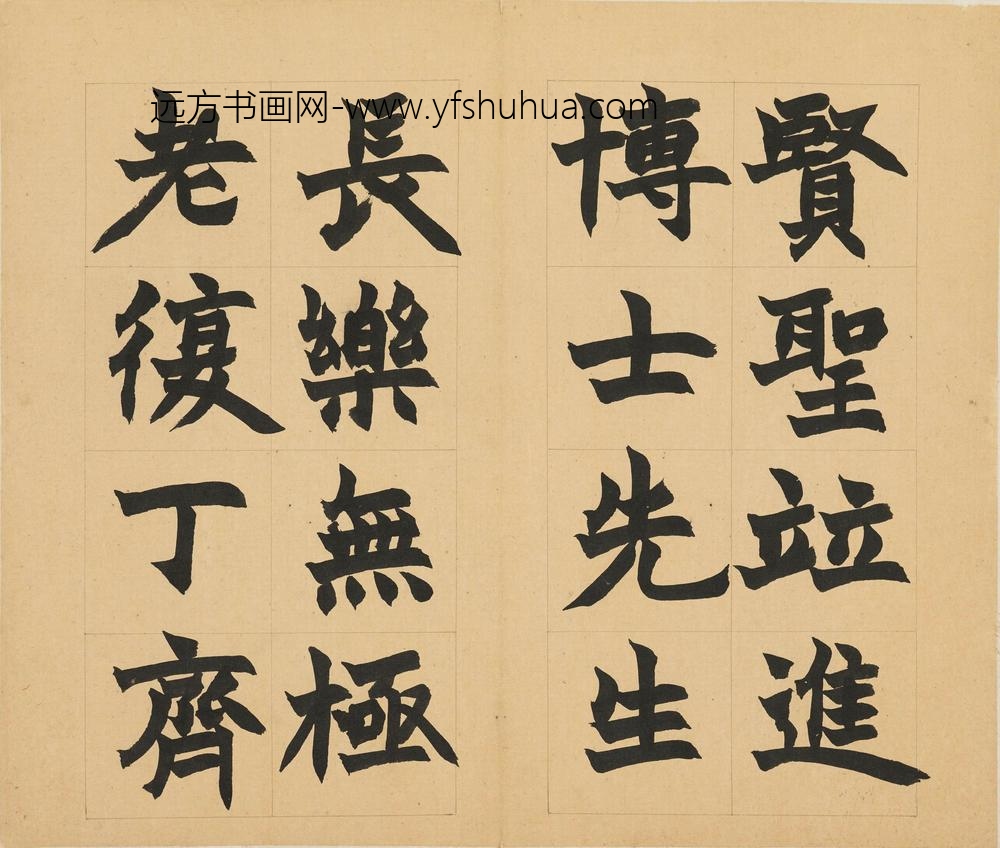 远方书画网-www.yfshuhua.com
賢聖竝進
博士先生
長樂無極
老復丁齊